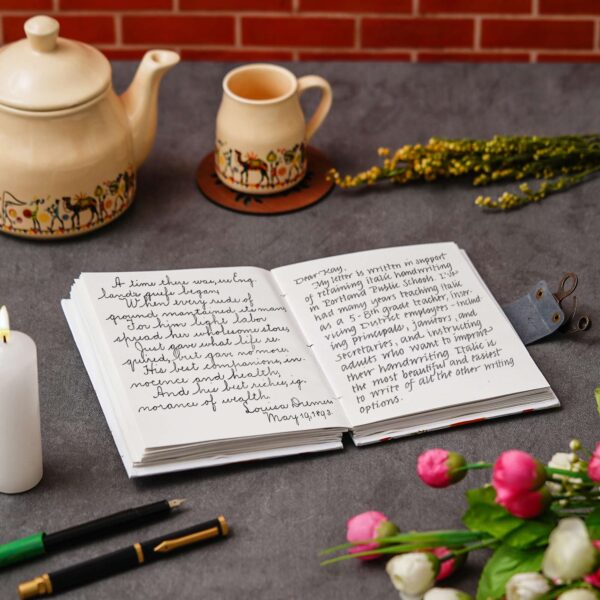 A time there was, ere Eng-
land's griefs began,
When every rude of
ground maintained its man;
For him light labor
spread her wholesome store,
Just gave what life re-
quired, but gave no more.
His best companions, in-
nocence and health;
And his best riches, ig-
norance of wealth.
Louisa
May 19, 1893.
Dear Kay,
My letter is written in support
of retaining italic handwriting
in Portland Public Schools. I've
had many years teaching italic
as a 5-8th grade teacher, inser-
vicing District employees - includ-
ing principals, janitors, and
secretaries, and instructing
adults who want to improve
their handwriting. Italic is
the most beautiful and easiest
to write of all the other writing
options.